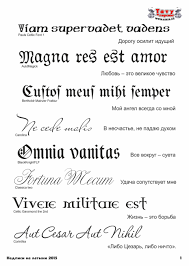 Тату
Viam supervadet vadens
Дорогу осилит идущий
Magna res est amor
Любовь – это великое чувство
Custos meus mihi semper
Мой ангел всегда со мной
Ne cede malis
В несчастье, не падаю духом
Omnia vanitas
Все вокруг – суета
Fortuna Mecum
Удача сопутствует мне
Vivere militare est
Жизнь – это борьба
Aut Cesar Aut Nihil
«Либо Цезарь, либо ничто».
Надписи на латыни 2015
1